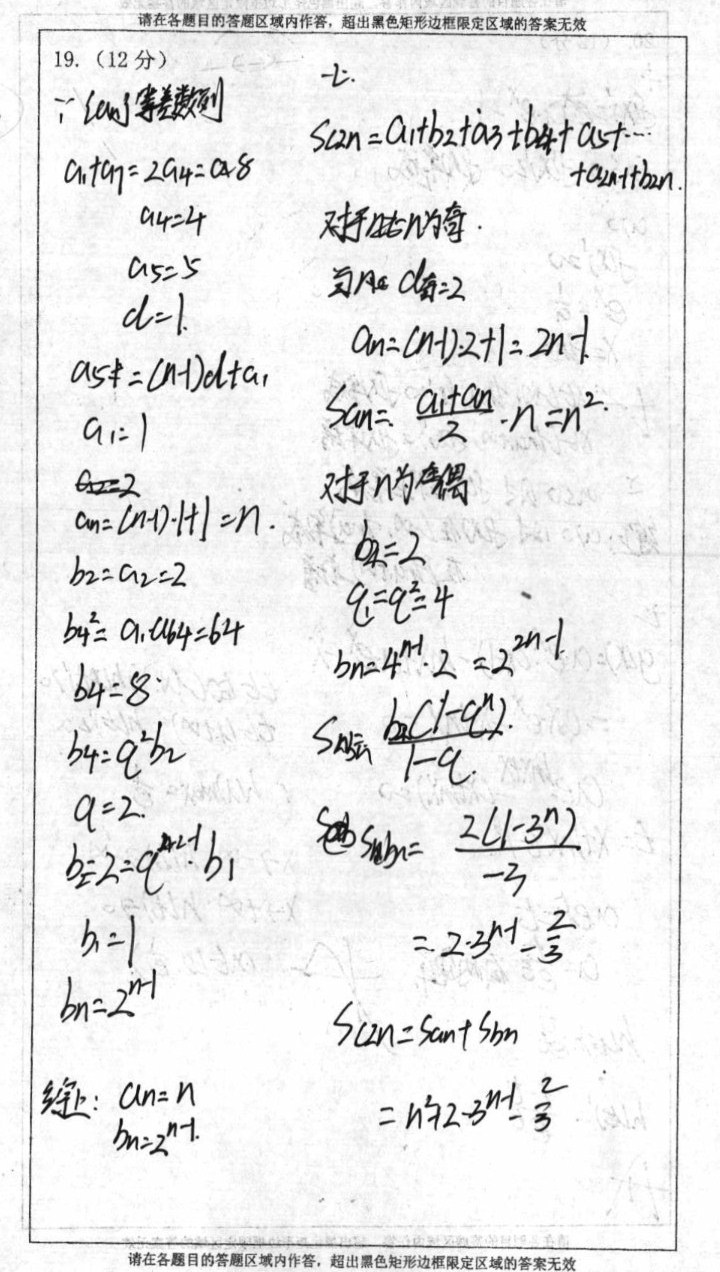 请在各题目的答题区域内作答，超出黑色矩形边框限定区域的答案无效
19.（12分）
∵{an}等差数列
a1+a7=2a4=8
a4=4
a5=5
d=1.
a5=(n-1)d+a1
a1=1
a2=2
an=(n-1)·1+1=n.
b2=a2=2
b4²=a1·a64=64
b4=8
b4=q²b2
q=2.
b2=2=q²⁻¹b1
b1=1
bn=2ⁿ⁻¹
综上：an=n
bn=2ⁿ⁻¹.
二.
Sc2n=a1+b2+a3+b4+a5+…
+a2n-1+b2n.
对于n为奇.
d奇=2
an=(n-1)·2+1=2n-1.
San=(a1+an)/2·n=n².
对于n为偶
b2=2
q1=q²=4
bn=4ⁿ⁻¹·2=2²ⁿ⁻¹.
Sbn=b2(1-qⁿ)/(1-q).
Sbn=2(1-3ⁿ)/-3
=2·3ⁿ⁻¹-2/3
Sc2n=San+Sbn
=n²+2·3ⁿ⁻¹-2/3
请在各题目的答题区域内作答，超出黑色矩形边框限定区域的答案无效